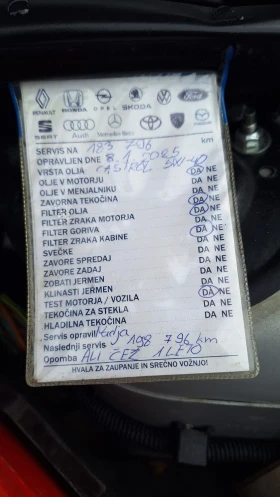 RENAULT HONDA OPEL ŠKODA Ford
SEAT Audi Mercedes-Benz TOYOTA PEUGEOT mazda
SERVIS NA 183 796 km
OPRAVLJEN DNE 8.1.2025
VRSTA OLJA CASTROL 5W-40
OLJE V MOTORJU DA NE
OLJE V MENJALNIKU DA NE
ZAVORNA TEKOČINA DA NE
FILTER OLJA DA NE
FILTER ZRAKA MOTORJA DA NE
FILTER GORIVA DA NE
FILTER ZRAKA KABINE DA NE
SVEČKE DA NE
ZAVORE SPREDAJ DA NE
ZAVORE ZADAJ DA NE
ZOBATI JERMEN DA NE
KLINASTI JERMEN DA NE
TEST MOTORJA / VOZILA DA NE
TEKOČINA ZA STEKLA DA NE
HLADILNA TEKOČINA DA NE
Servis opravil
Naslednji servis 198 796 km
Opomba ALI ČEZ 1 LETO
HVALA ZA ZAUPANJE IN SREČNO VOŽNJO!